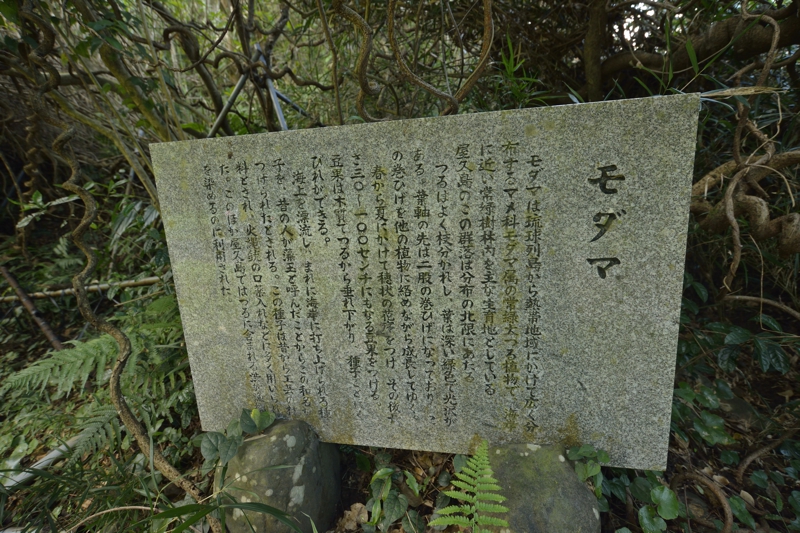 モダマ
モダマは琉球列島から熱帯地域にかけて広く分
布するマメ科モダマ属の常緑大つる植物で、海岸
に近い常緑樹林内を主な生育地としている
屋久島のこの群落は分布の北限にあたる
つるはよく枝分かれし、葉は深い緑色で光沢が
ある。葉軸の先は二股の巻ひげになっており、こ
の巻ひげを他の植物に絡めながら成長してゆく。
春から夏にかけて穂状の花序をつけ、その後長
さ三〇〜一〇〇センチにもなる豆果をつける
豆果は木質でつるから垂れ下がり、種子
びれができる。
海上を漂流し、まれに海岸に打ち上げられる種
子を、昔の人が藻玉と呼んだことからこの和名が
つけられたとされる。この種子は昔から工芸の材
料とされ、火薬の口
た。このほか屋久島ではつるに含まれる
を染めるのに利用された